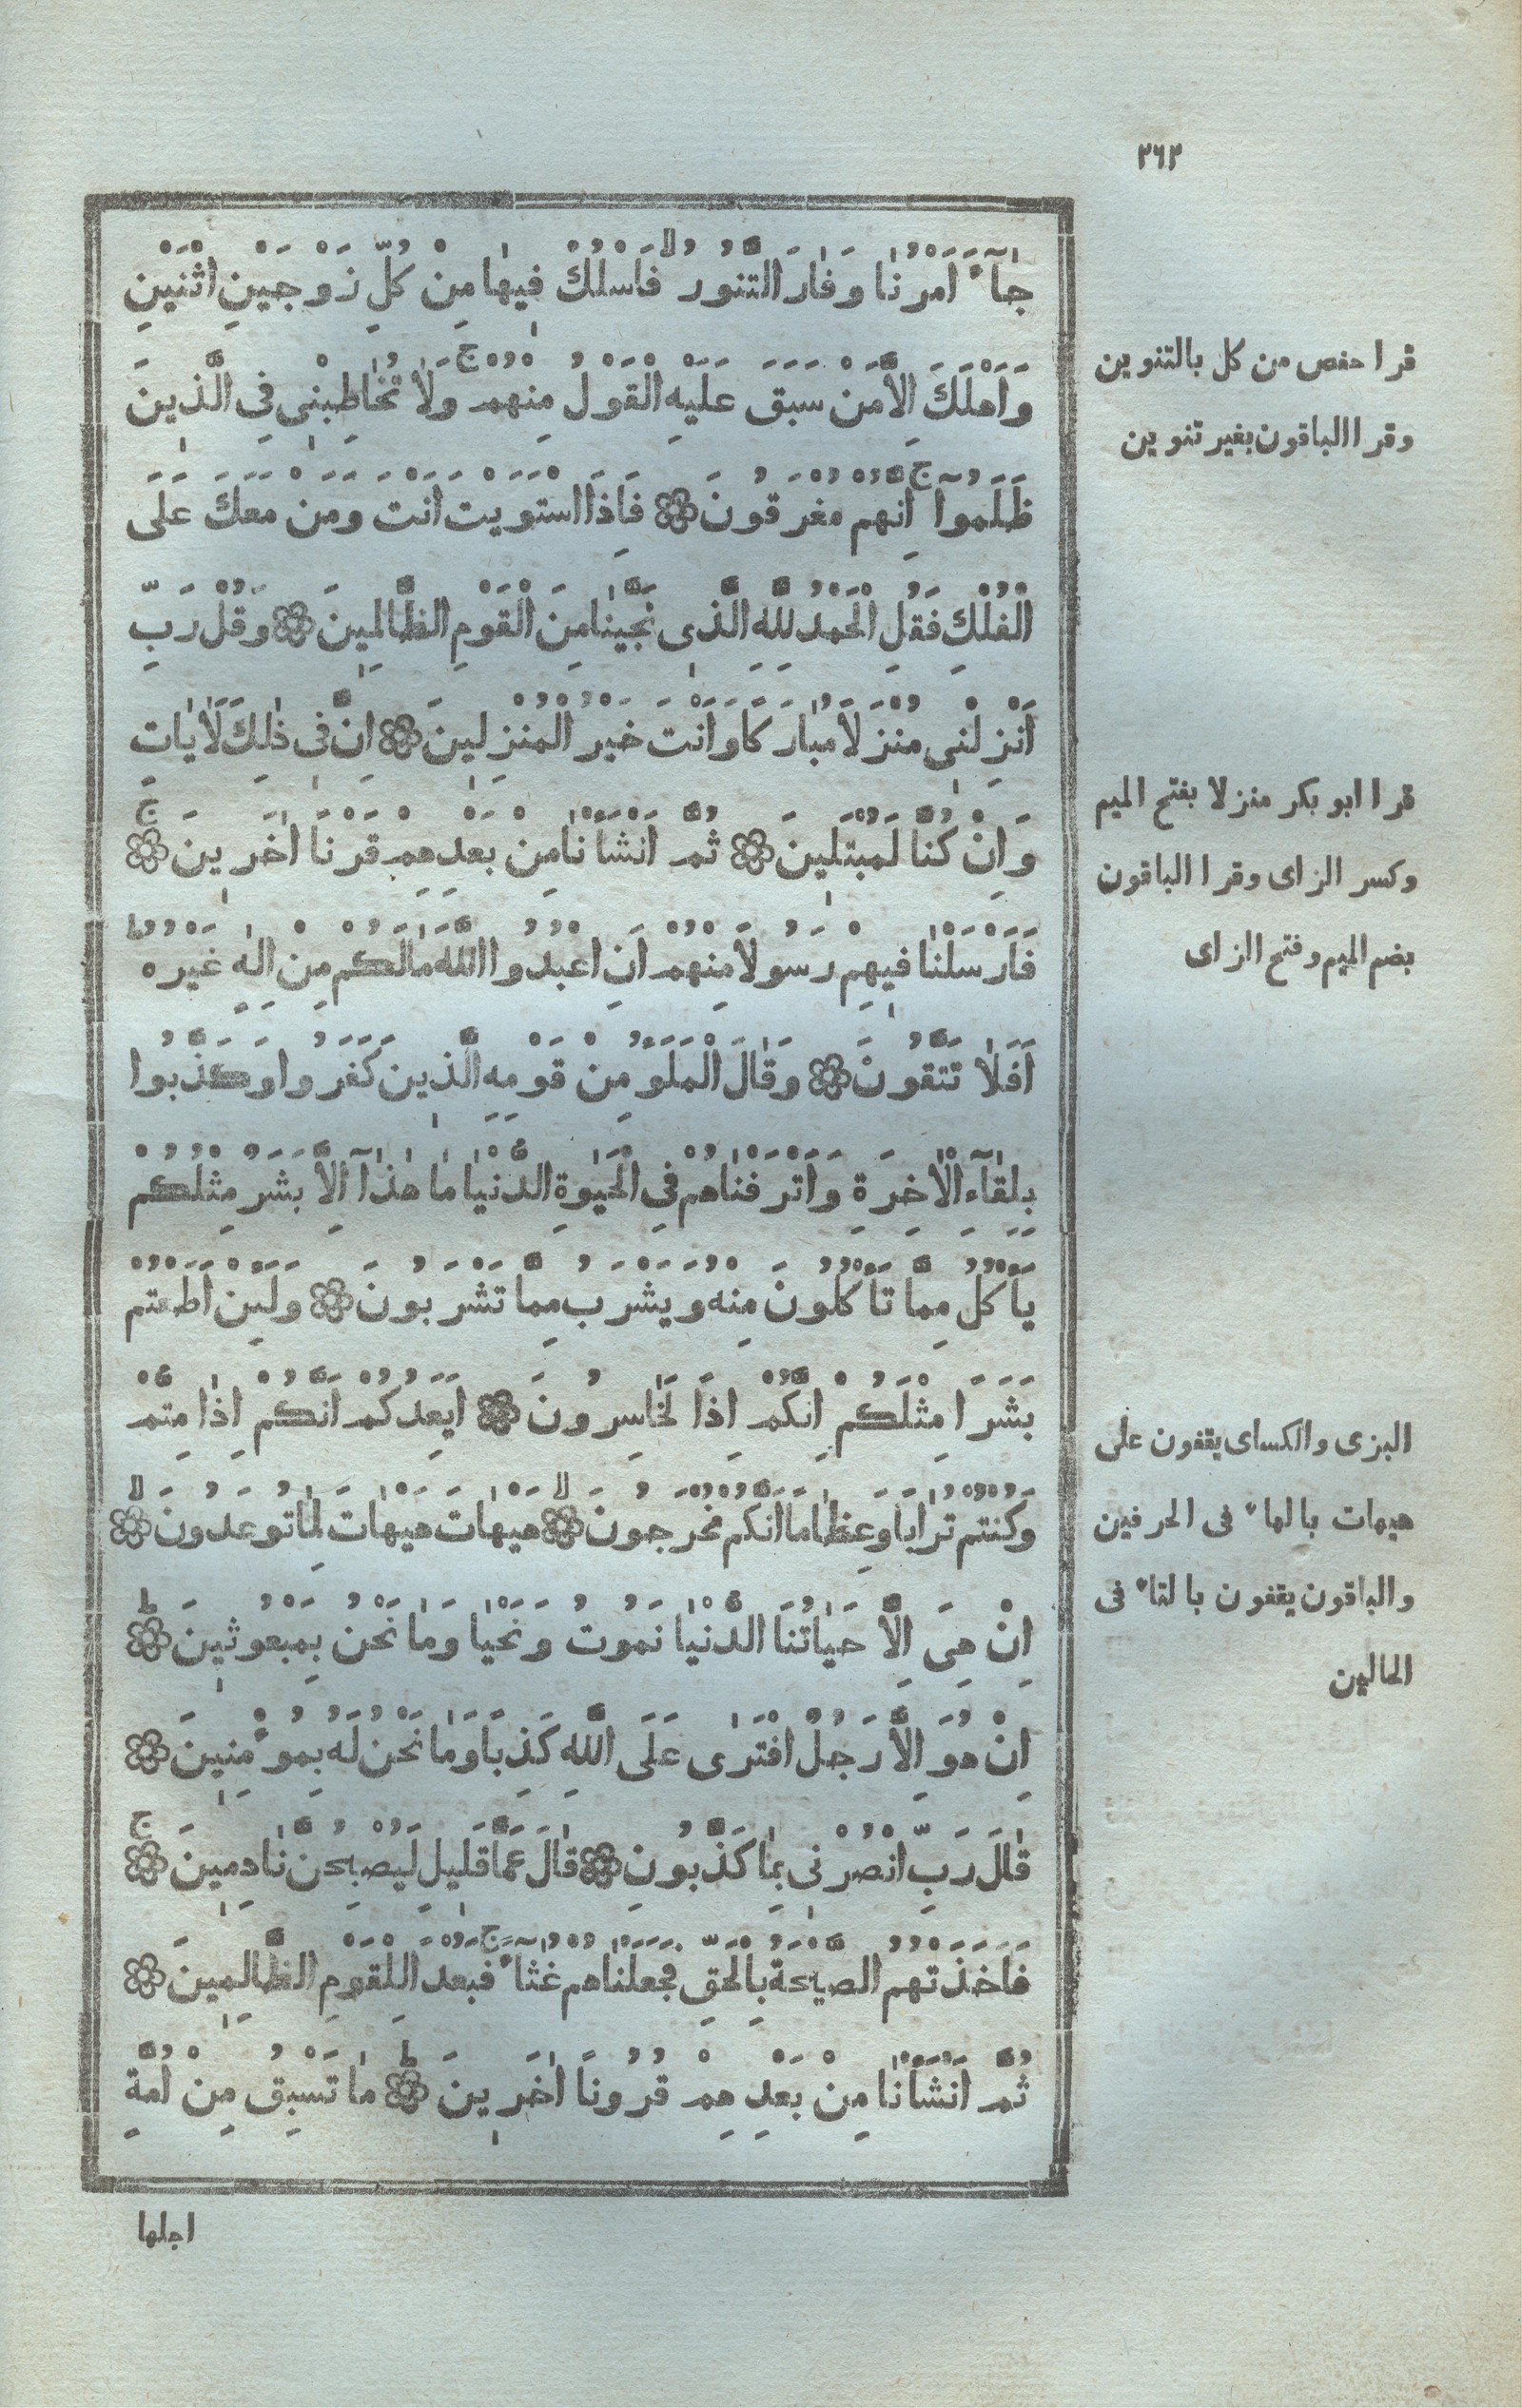 ٣٦٢
جَاۤءَ اَمْرُنَا وَفَارَ التَّنُّورُ ۙ فَاسْلُكْ فِيهَا مِنْ كُلِّ زَوْجَيْنِ اثْنَيْنِ
وَاَهْلَكَ اِلَّا مَنْ سَبَقَ عَلَيْهِ الْقَوْلُ مِنْهُمْ ۚ وَلَا تُخَاطِبْنِى فِى الَّذِينَ
ظَلَمُوۤا ۚ اِنَّهُمْ مُغْرَقُونَ ۞ فَاِذَا اسْتَوَيْتَ اَنْتَ وَمَنْ مَعَكَ عَلَى
الْفُلْكِ فَقُلِ الْحَمْدُ لِلّٰهِ الَّذِى نَجَّيْنَا مِنَ الْقَوْمِ الظَّالِمِينَ ۞ وَقُلْ رَبِّ
اَنْزِلْنِى مُنْزَلًا مُبَارَكًا وَاَنْتَ خَيْرُ الْمُنْزِلِينَ ۞ اِنَّ فِى ذٰلِكَ لَاٰيَاتٍ
وَاِنْ كُنَّا لَمُبْتَلِينَ ۞ ثُمَّ اَنْشَأْنَا مِنْ بَعْدِهِمْ قَرْنًا اٰخَرِينَ ۚ ۞
فَاَرْسَلْنَا فِيهِمْ رَسُولًا مِنْهُمْ اَنِ اعْبُدُوا اللّٰهَ مَا لَكُمْ مِنْ اِلٰهٍ غَيْرُهُ ؕ
اَفَلَا تَتَّقُونَ ۞ وَقَالَ الْمَلَؤُ مِنْ قَوْمِهِ الَّذِينَ كَفَرُوا وَكَذَّبُوا
بِلِقَاۤءِ الْاٰخِرَةِ وَاَتْرَفْنَاهُمْ فِى الْحَيٰوةِ الدُّنْيَا مَا هٰذَاۤ اِلَّا بَشَرٌ مِثْلُكُمْ
يَأْكُلُ مِمَّا تَأْكُلُونَ مِنْهُ وَيَشْرَبُ مِمَّا تَشْرَبُونَ ۞ وَلَئِنْ اَطَعْتُمْ
بَشَرًا مِثْلَكُمْ اِنَّكُمْ اِذًا لَخَاسِرُونَ ۞ اَيَعِدُكُمْ اَنَّكُمْ اِذَا مِتُّمْ
وَكُنْتُمْ تُرَابًا وَعِظَامًا اَنَّكُمْ مُخْرَجُونَ ۙ ۞ هَيْهَاتَ هَيْهَاتَ لِمَا تُوعَدُونَ ۙ ۞
اِنْ هِىَ اِلَّا حَيَاتُنَا الدُّنْيَا نَمُوتُ وَنَحْيَا وَمَا نَحْنُ بِمَبْعُوثِينَ ؕ ۞
اِنْ هُوَ اِلَّا رَجُلٌ افْتَرٰى عَلَى اللّٰهِ كَذِبًا وَمَا نَحْنُ لَهُ بِمُؤْمِنِينَ ۞
قَالَ رَبِّ انْصُرْنِى بِمَا كَذَّبُونِ ۞ قَالَ عَمَّا قَلِيلٍ لَيُصْبِحُنَّ نَادِمِينَ ۚ ۞
فَاَخَذَتْهُمُ الصَّيْحَةُ بِالْحَقِّ فَجَعَلْنَاهُمْ غُثَاۤءً ۚ فَبُعْدًا لِلْقَوْمِ الظَّالِمِينَ ۞
ثُمَّ اَنْشَأْنَا مِنْ بَعْدِهِمْ قُرُونًا اٰخَرِينَ ؕ ۞ مَا تَسْبِقُ مِنْ اُمَّةٍ
اجلها
قرا حفص من كل بالتنوين
وقرا الباقون بغير تنوين
قرا ابو بكر منزلا بفتح الميم
وكسر الزاى وقرا الباقون
بضم الميم وفتح الزاى
البزى والكساى يقفون على
هيهات بالهاء فى الحرفين
والباقون يقفون بالتاء فى
الحالين